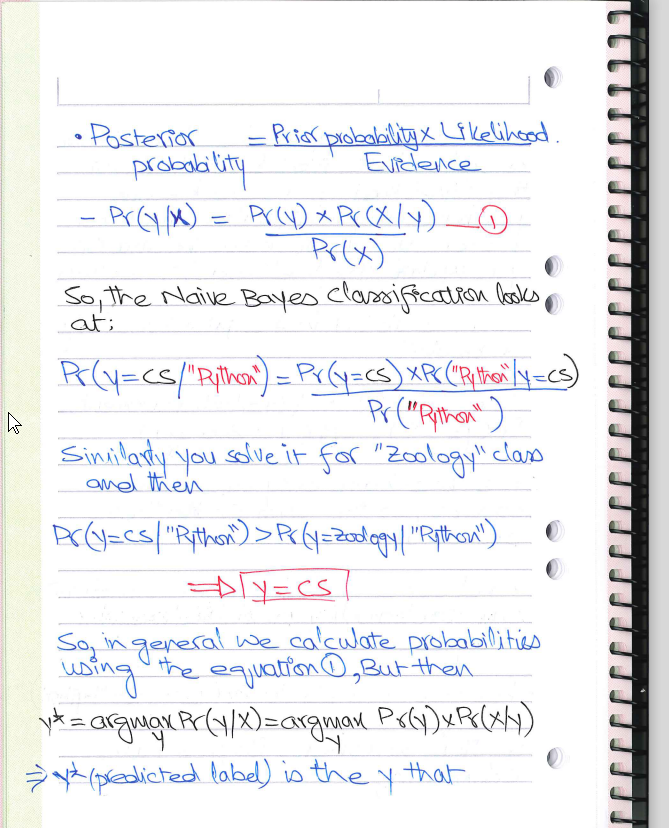 • Posterior = Prior probability x Likelihood.
probability Evidence
- Pr(y/X) = Pr(y) x Pr(X/y) — ①
Pr(X)
So, the Naive Bayes classification looks
at:
Pr(y=CS/"Python") = Pr(y=CS) x Pr("Python"/y=CS)
Pr("Python")
Similarly you solve it for "Zoology" class
and then
Pr(y=CS/"Python") > Pr(y=zoology/"Python")
⇒ y = CS
So, in general we calculate probabilities
using the equation ①, But then
y* = argmax Pr(y/X) = argmax Pr(y) x Pr(X/y)
y y
⇒ y* (predicted label) is the y that